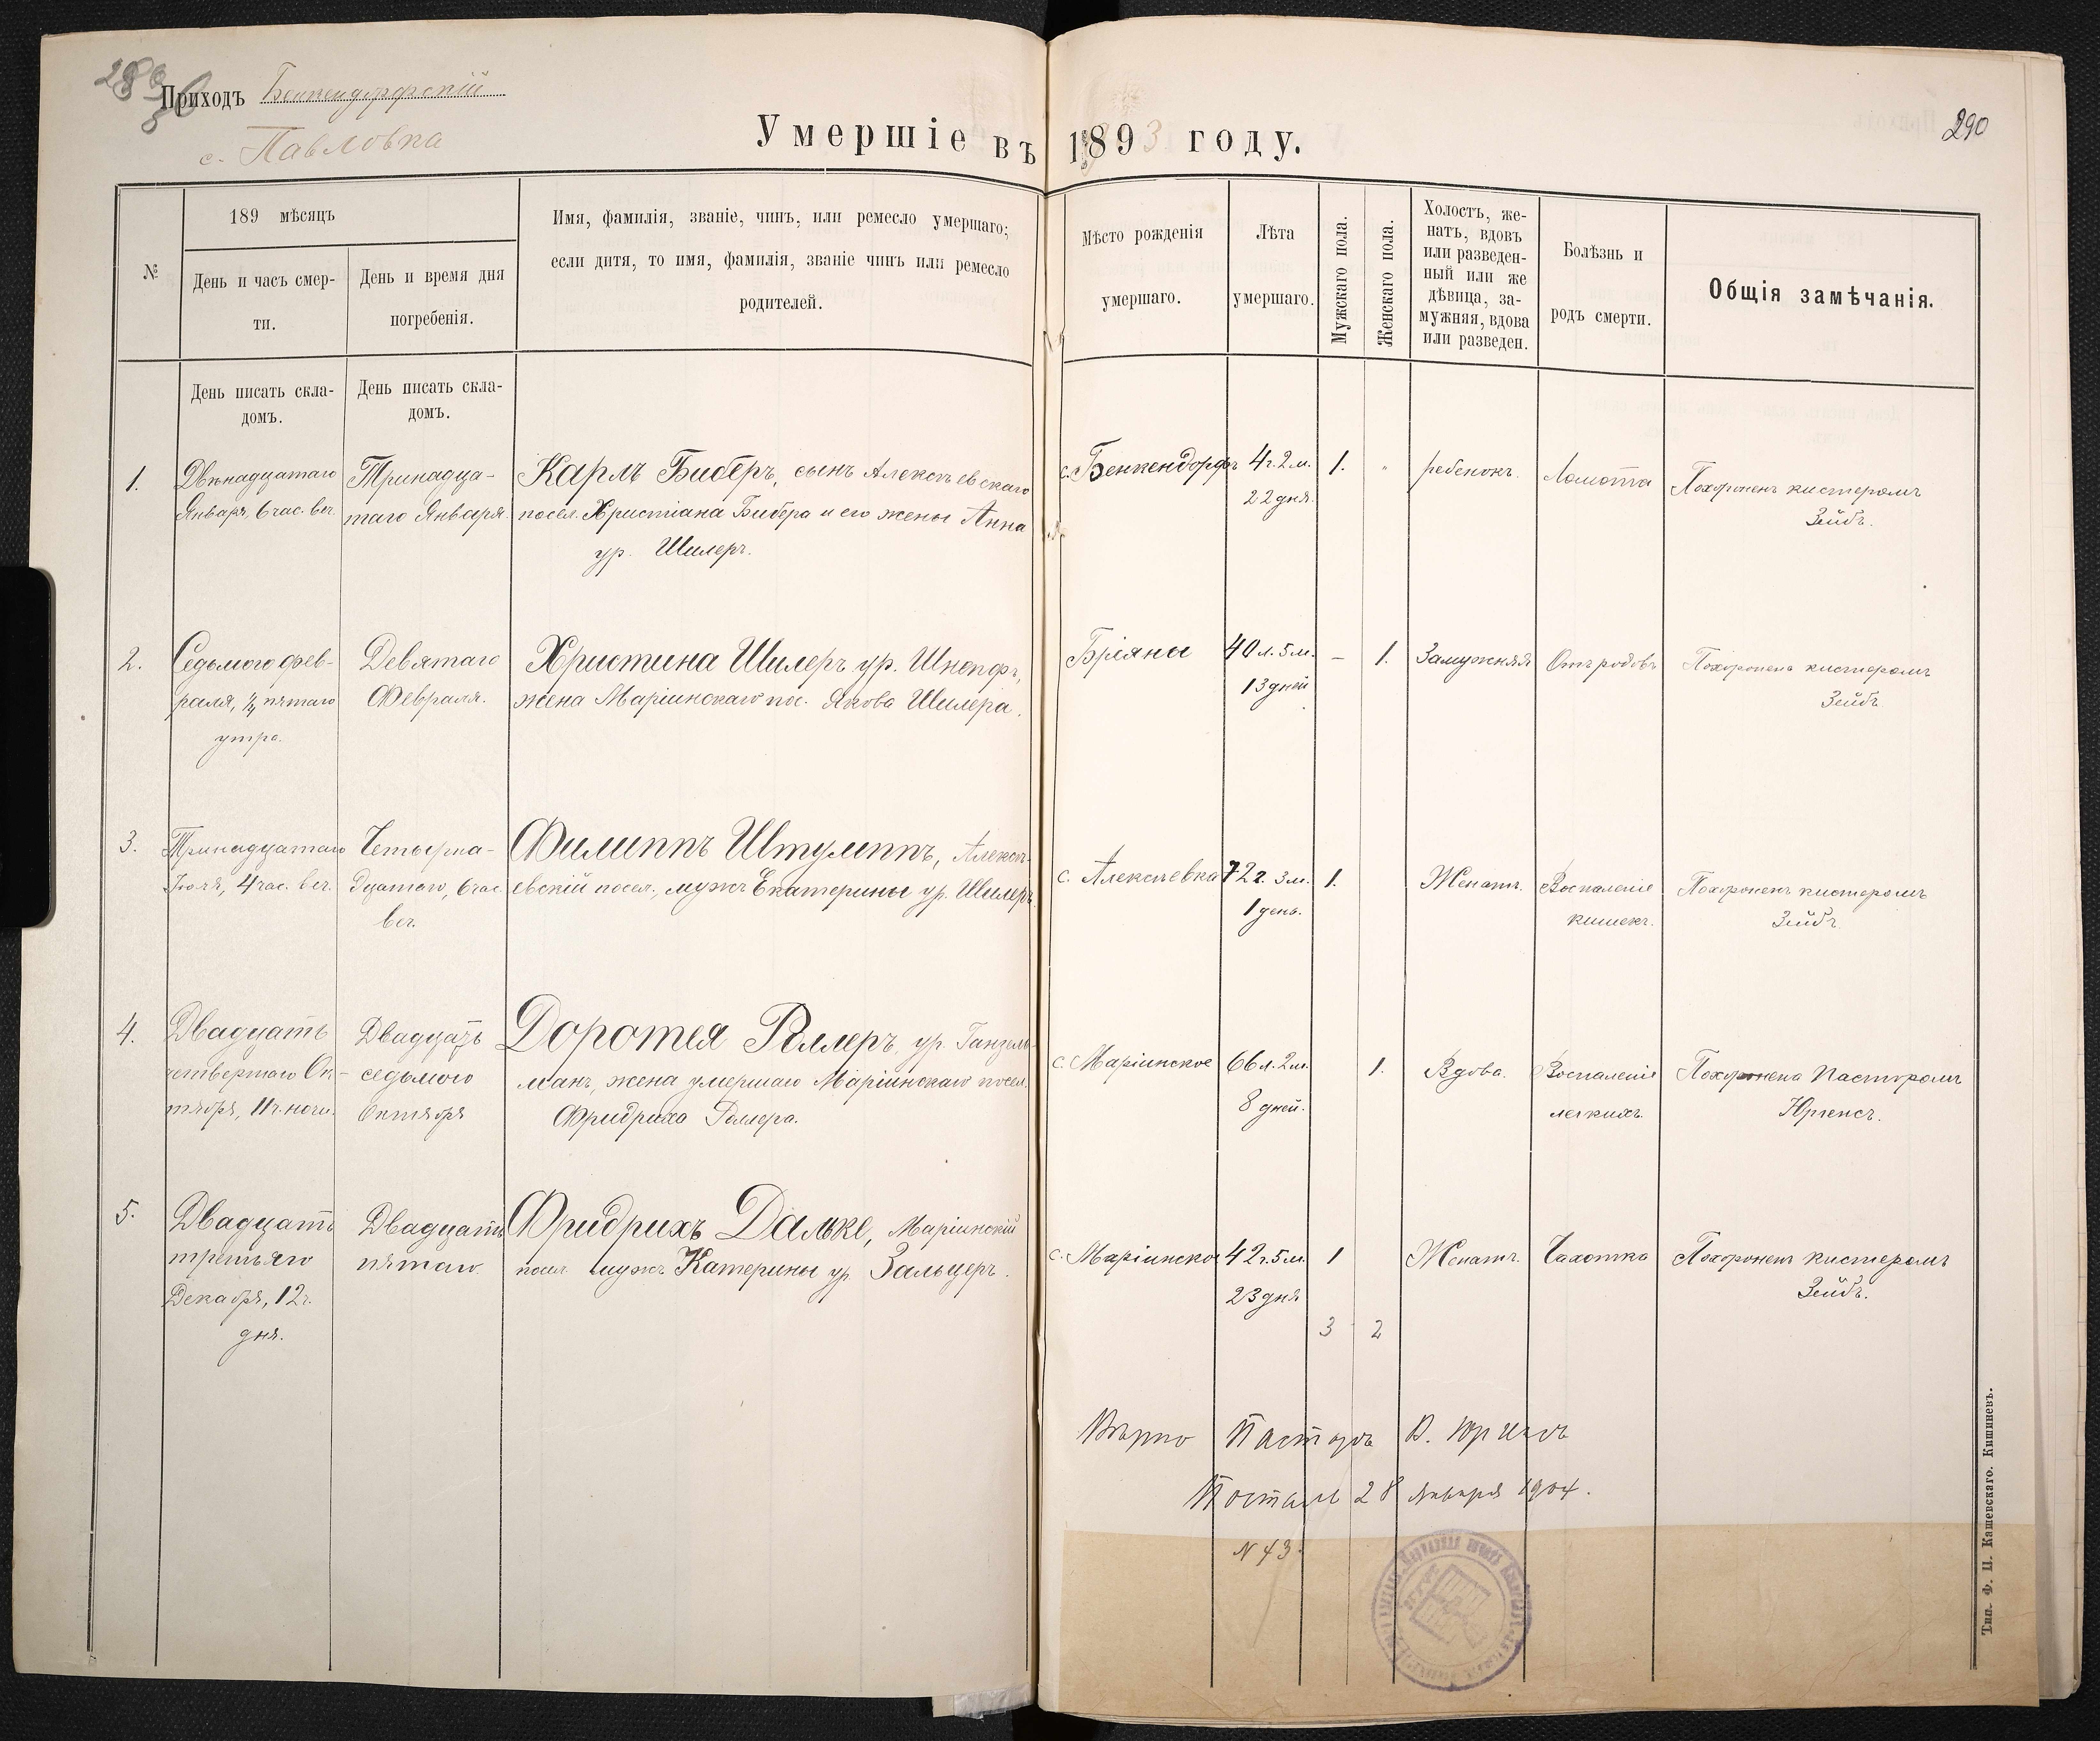 Приходъ Бенкендорфскій
с. Павловка
Умершіе въ 1893 году.
290
№
189 мѣсяцъ
День и часъ смер-
ти.
День и время дня
погребенія.
Имя, фамилія, званіе, чинъ, или ремесло умершаго;
если дитя, то имя, фамилія, званіе чинъ или ремесло
родителей.
Мѣсто рожденія
умершаго.
Лѣта
умершаго.
Мужскаго пола.
Женскаго пола.
Холостъ, же-
натъ, вдовъ
или разведен-
ный или же
дѣвица, за-
мужняя, вдова
или разведен.
Болѣзнь и
родъ смерти.
Общія замѣчанія.
День писать скла-
домъ.
День писать скла-
домъ.
1.
Двѣнадцатаго
Января, 6 час. веч.
Тринадца-
таго Января.
Карлъ Биберъ, сынъ Алексѣевскаго
посел. Христіана Бибера и его жены Анна
ур. Шилеръ.
с. Бенкендорфъ
4 г. 2 м.
22 дня.
1.
"
ребенокъ.
Ломота
Похороненъ кистеромъ
Зейбъ.
2.
Седьмого фев-
раля, ¼ пятаго
утра.
Девятаго
Февраля.
Христина Шилеръ ур. Шнепфъ,
жена Маріинскаго пос. Якова Шилера.
Бріяны
40 л. 5 м.
13 дней
–
1.
Замужняя
Отъ родовъ
Похоронена кистеромъ
Зейбъ
3.
Тринадцатаго
Іюля, 4 час. веч.
Четырна-
дцатаго, 6 час
веч.
Филиппъ Штумппъ, Алексѣ-
евскій посел., мужъ Екатерины ур. Шилеръ.
с. Алексѣевка
72 г. 3 м.
1 день.
1.
Женатъ.
Воспаленіе
кишекъ.
Похороненъ кистеромъ
Зейбъ
4.
Двадцать
четвертаго Ок-
тября, 11 ч. ночи.
Двадцать
седьмого
Октября
Доротея Роллеръ, ур. Ганзель-
манъ, жена умершаго Маріинскаго посел.
Фридриха Роллера.
с. Маріинское
66 л. 2 м.
8 дней.
1.
Вдова.
Воспаленіе
легкихъ.
Похоронена Пасторомъ
Юргенсъ.
5.
Двадцать
третьяго
Декабря, 12 ч.
дня.
Двадцать
пятаго
Фридрихъ Дальке, Маріинскій
посел. мужъ Катерины ур. Зальцеръ.
с. Маріинское
42 г. 5 м.
23 дня
1
Женатъ.
Чахотка
Похороненъ кистеромъ
Зейбъ.
3
2
Вѣрно Пасторъ
28 января 1904.
N 43.
Тип. Ф. П. Кашевскаго. Кишиневъ.